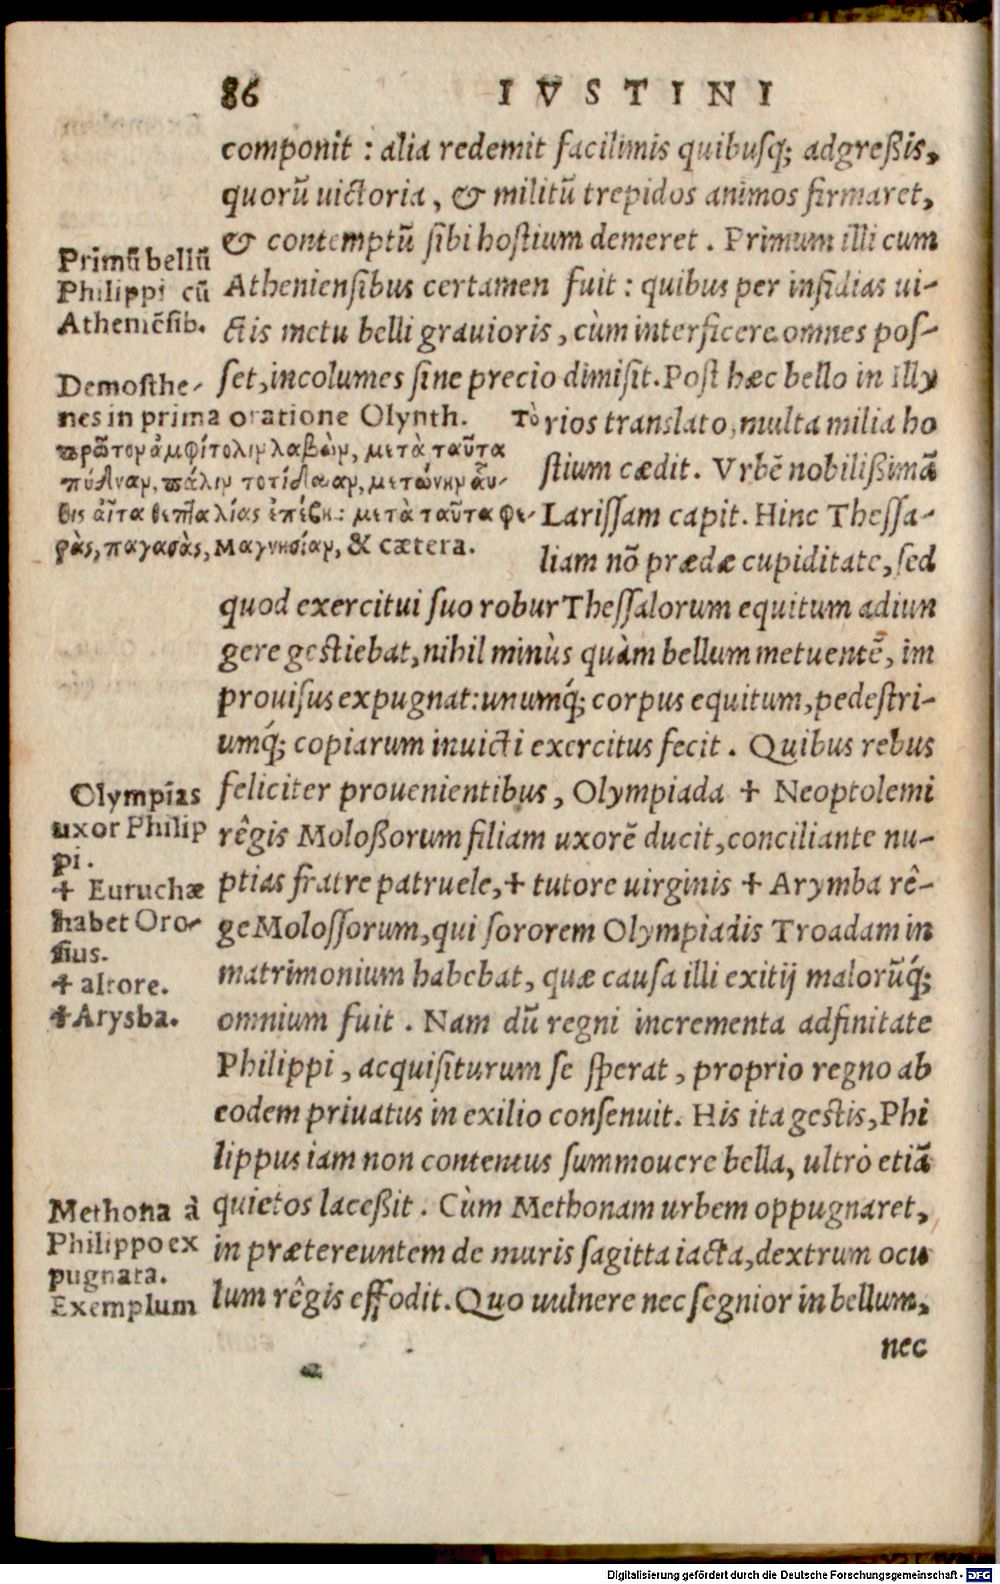 86 IVSTINI
componit : alia redemit facilimis quibusq; adgreßis,
quorũ uictoria, & militũ trepidos animos firmaret,
& contemptũ sibi hostium demeret. Primum illi cum
Atheniensibus certamen fuit : quibus per insidias ui-
ctis metu belli grauioris, cùm interficere omnes pos-
set, incolumes sine precio dimisit. Post hæc bello in Illy
rios translato, multa milia ho
stium cædit. Vrbẽ nobilißimã
Larissam capit. Hinc Thessa-
liam nõ prædæ cupiditate, sed
quod exercitui suo robur Thessalorum equitum adiun
gere gestiebat, nihil minùs quàm bellum metuentẽ, im
prouisus expugnat: unumq́; corpus equitum, pedestri-
umq́; copiarum inuicti exercitus fecit. Quibus rebus
feliciter prouenientibus, Olympiada ✢ Neoptolemi
rêgis Moloßorum filiam uxorẽ ducit, conciliante nu-
ptias fratre patruele, ✢ tutore uirginis ✢ Arymba rê-
ge Molossorum, qui sororem Olympiadis Troadam in
matrimonium habebat, quæ causa illi exitij malorũq́;
omnium fuit. Nam dũ regni incrementa adfinitate
Philippi, acquisiturum se sperat, proprio regno ab
eodem priuatus in exilio consenuit. His ita gestis, Phi
lippus iam non contentus summouere bella, ultrò etiã
quietos laceßit. Cùm Methonam urbem oppugnaret,
in prætereuntem de muris sagitta iacta, dextrum ocu
lum rêgis effodit. Quo uulnere nec segnior in bellum,
nec
Primũ bellũ
Philippi cũ
Atheniẽsib.
Demosthe-
nes in prima oratione Olynth. Τὸ
πρῶτον ἀμφίπολιν λαβὼν, μετὰ ταῦτα
πύδναν, πάλιν ποτίδαιαν, μεπώνην αὖ-
θις εἶτα θετταλίας ἐπέβη: μετὰ ταῦτα φε-
ρὰς, παγασὰς, μαγνησίαν, & cætera.
Olympias
uxor Philip
pi.
✢ Euruchæ
habet Oro-
sius.
✢ altore.
✢ Arysba.
Methona à
Philippo ex
pugnata.
Exemplum
Digitalisierung gefördert durch die Deutsche Forschungsgemeinschaft - DFG